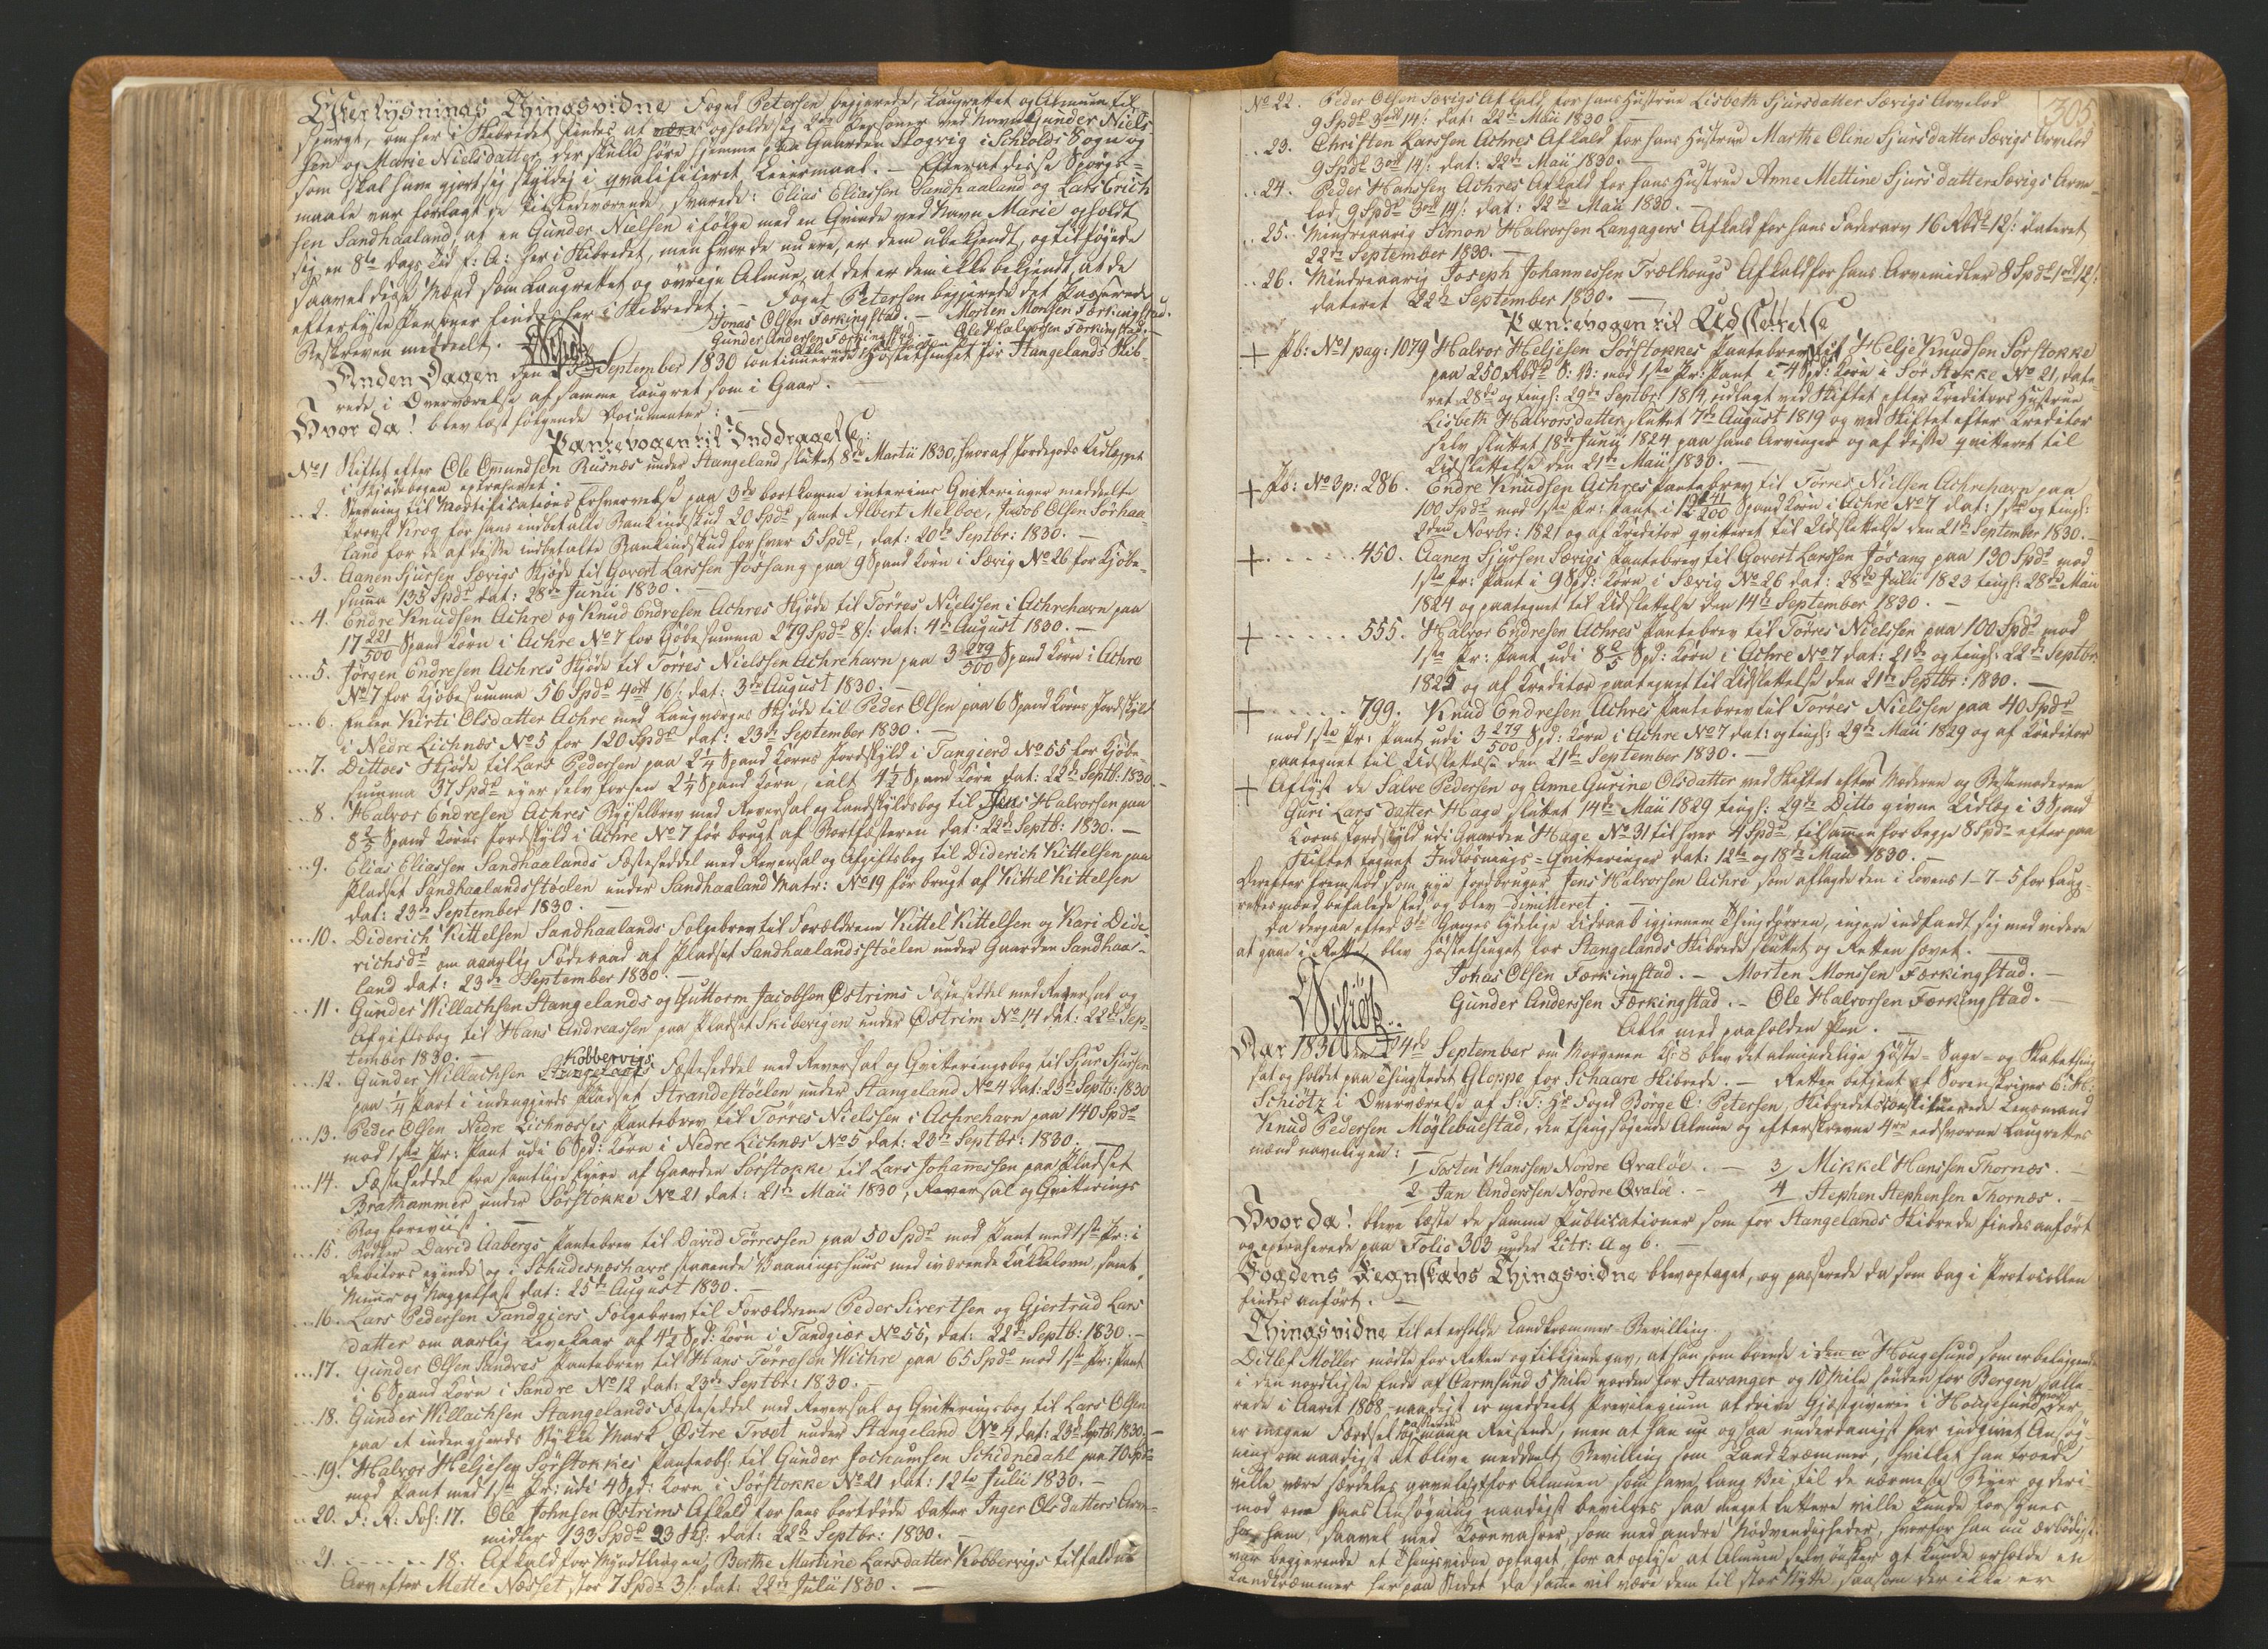 Efterlysnings Thingsvidne Foged Petersen begjærede, Laugrettet og Almuen til-
spurgt, om her i Skibredet findes at opholde sig 2de Personer ved Navn Gunder Niels-
sen og Marie Nielsdatter, der skulle høre hjemme paa Gaarden Skogvig i Schiolds Sogn og
som skal have gjort sig skyldig i qvalificeret Leiermaal. — Efterat disse Spørgs-
maale var forelagt de tilstedeværende, svarede: Elias Eliassen Sandhaaland og Lars Erich
sen Sandhaaland, at en Gunder Nielsen ifølge med en Qvinde ved Navn Marie opholdt
sig en 8te Dags Tid f: A: her i Skibredet, men hvor de nu ere, er dem ubekjendt, og tilføyede
saavel disse Mænd som Laugrettet og øvrige Almue, at det er dem ikke bekjendt, at de
efterlyste Personer findes her i Skibredet. — Foged Petersen begjærede det Passerede
Beskreven meddeelt. Jonas Olsen Færkingstad. — Morten Monsen Færkingstad.
Gunder Andersen Færkingstad — Ole Halvorsen Færkingstad. —
Schiøtz Alle med paaholden Pen.
Anden Dagen den 23de September 1830 continuerede Høstethinget for Stangelands Skib-
rede i Overværelse af samme Laugret som i Gaar. —
Hvor da! blev læst følgende Documenter: —
Pantebogen til Inddragelse:
No 1 Skiftet efter Ole Omundsen Rusnæs under Stangeland sluttet 8de Martii 1830, hvoraf Jordegods Udlægget
i Skjødebogen extraheret. —
.. 2. Stevning til Mortifications Erhvervelse paa 3de bortkomne interims Qvitteringer meddeelte
Provst Krog for hans indbetalte Bankindskud 20 Spd samt Albert Melboe, Jacob Olsen Sørhaa-
land for de af disse indbetalte Bankindskud for hver 5 Spd, dat: 20de Septbr: 1830. —
.. 3. Aanen Sjursen Sævigs Skjøde til Govert Larssen Jøsang paa 9 Spand Korn i Sævig No 26 for Kjøbe-
summa 135 Spd dat: 28de Junii 1830. —
.. 4. Endre Knudsen Achre og Knud Endresen Achres Skjøde til Tørres Nielssen i Achrehavn paa
17 221/500 Spand Korn i Achre No 7 for Kjøbesumma 279 Spd 8 s: dat: 4de August 1830. —
... 5. Jørgen Endresen Achres Skjøde til Tørres Nielssen Achrehavn paa 3 279/500 Spand Korn i Achre
No 7 for Kjøbesumma 56 Spd 4 ort 16 s: dat: 3de August 1830. —
.. 6. Enken Kirsti Olsdatter Achre med Laugværges Skjøde til Peder Olsen paa 6 Spand Korns Jordskyld
i Nedre Lichnæs No 5 for 120 Spd dat: 23de September 1830. —
... 7. Dittoes Skjøde til Lars Pedersen paa 2 1/4 Spand Korns Jordskyld i Tangierd No 55 for Kjøbe-
summa 37 Spd eyer selv forhen 2 1/4 Spand Korn, ialt 4 1/2 Spand Korn dat: 22de Septb: 1830. —
... 8. Halvor Endresen Achres Bygselbrev med Reversal og Landskyldsbog til Jens Halvorsen paa
8 2/5 Spand Korns Jordskyld i Achre No 7 før brugt af Bortfæsteren dat: 22de Septb: 1830. —
... 9. Elias Eliassen Sandhaalands Fæsteseddel med Reversal og Afgiftsbog til Diderich Kittelsen paa
Pladset Sandhaalandsstøelen under Sandhaaland Matr: No 19 før brugt af Kittel Kittelsen
dat: 23de September 1830. —
... 10. Diderich Kittelsen Sandhaalands Folgebrev til Forældrene Kittel Kittelsen og Kari Dide-
richsdr om aarlig Føderaad af Pladset Sandhaalandsstøelen under Gaarden Sandhaa-
land dat: 23de September 1830. —
.. 11. Gunder Willachsen Stangelands og Guttorm Jacobsen Østrims Fæsteseddel med Reversal og
Afgiftsbog til Hans Andreassen paa Pladset Skibevigen under Østrim No 14 dat: 22de Sep-
tember 1830. —
.. 12. Gunder Willachsen Kobbervigs Fæsteseddel med Reversal og Qvitteringsbog til Sjur Sjursen
paa 1/4 Part i indengjerds Pladset Strandestøelen under Stangeland No 4 dat: 23de Septb: 1830
... 13. Peder Olsen Nedre Lichnæsses Pantebrev til Tørres Nielssen i Achrehavn paa 140 Spd
mod 1ste Pr: Pant udi 6 Spd: Korn i Nedre Lichnæs No 5 dat: 23de Septbr: 1830. —
... 14. Fæsteseddel fra samtlige Eyere af Gaarden Sørstokke til Lars Johannessen paa Pladset
Brathammer under Sørstokke No 21 dat: 21de Maii 1830, Reversal og Qvitterings
Bog foreviist. —
... 15. David Aabergs Pantebrev til David Tørressen paa 50 Spd mod Pant med 1ste Pr: i
Debitors eyende og i Schudesnæshavn staaende Vaaningshuus med iværende Kakkelovn, samt
Muur og Naggelfast dat: 25de August 1830. —
... 16. Lars Pedersen Tandgiers Folgebrev til Forældrene Peder Sivertsen og Gjertrud Lars
datter om aarlig Levekaar af 4 1/2 Spd: Korn i Tandgiær No 55, dat: 22de Septb: 1830. —
... 17. Gunder Olsen Sandres Pantebrev til Hans Tørresen Wichre paa 65 Spd mod 1ste Pr: Pant
i 6 Spand Korn i Sandre No 12 dat: 23de Septbr: 1830. —
... 18. Gunder Willachsen Stangelands Fæsteseddel med Reversal og Qvitteringsbog til Lars Olsen
paa et indengjerds Stykke Mark Østre Træet under Stangeland No 4 dat: 23de Septb: 1830. —
... 19. Halvor Heljesen Sørstokkes Panteobl: til Gunder Jochumsen Schidnedahl paa 70 Spd
mod Pant med 1ste Pr: udi 4 Spd: Korn i Sørstokke No 21 dat: 12te Julii 1830. —
.. 20. F: A: Fol: 17. Ole Johnsen Østrims Afkald for hans bortdøde Datter Inger Olsdatters Arve-
midler 133 Spd 23 sk: dat: 22de Septbr: 1830. —
.. 21. — — .. 18. Afkald for Myndtlingen Berthe Martine Larsdatter Kobbervigs tilfaldne
Arv efter Mette Næsset stor 7 Spd 3 s: dat: 22de Julii 1830. —
305
No 22. Peder Olsen Sævigs Afkald for hans Hustrue Lisbeth Sjursdatter Sævigs Arvelod
9 Spd 3 ort 14 s: dat: 22de Maii 1830. —
.. 23. Christen Larssen Achres Afkald for hans Hustrue Marthe Oline Sjursdatter Sævigs Arvelod
9 Spd 3 ort 14 s: dat: 22de Maii 1830. —
.. 24. Peder Hanssen Achres Afkald for hans Hustrue Anne Mettine Sjursdatter Sævigs Arve-
lod 9 Spd 3 ort 14 s: dat: 22de Maii 1830. —
.. 25. Mindreaarig Simon Halvorsen Langagers Afkald for hans Faderarv 16 Rbd 12 s: dateret
22de September 1830. —
.. 26. Mindreaarig Joseph Johannessen Trælhougs Afkald for hans Arvemidler 8 Spd 1 ort 12 s:
dateret 22de September 1830. —
Pantebogen til Udslettelse
+ Pb: No 1 pag: 1079 Halvor Heljesen Sørstokkes Pantebrev til Helje Knudsen Sørstokke
paa 250 Rbd S: V: mod 1ste Pr: Pant i 4 Spd: Korn i Sør Stokke No 21, date-
ret 28de og tingl: 29de Septbr: 1814, udlagt ved Skiftet efter Kreditors Hustrue
Lisbeth Halvorsdatter sluttet 7de August 1819 og ved Skiftet efter Kreditor
selv sluttet 18de Junii 1824 paa hans Arvinger og af disse qvitteret til
Udslettelse den 21de Maii 1830. —
+ Pb: No 3 p: 286. Endre Knudsen Achres Pantebrev til Tørres Nielsen Achrehavn paa
100 Spd mod 1ste Pr: Pant i 41/200 Spand Korn i Achre No 7 dat: 1ste og tingl:
2den Novbr: 1821 og af Kreditor qvitteret til Udslettelse den 21de September 1830. —
+ . . . . . 450. Aanen Sjursen Sævigs Pantebrev til Govert Larssen Jøsang paa 130 Spd mod
1ste Pr: Pant i 9 Spd: Korn i Sævig No 26 dat: 28de Julii 1823 tingl: 28de Maii
1824 og paategnet til Udslettelse den 14de September 1830. —
+ . . . . . 555. Halvor Endresen Achres Pantebrev til Tørres Nielssen paa 100 Spd mod
1ste Pr: Pant udi 8 2/5 Spd: Korn i Achre No 7 dat: 21de og tingl: 22de Septbr:
1825 og af Kreditor paategnet til Udslettelse den 21de Septbr: 1830. —
+ . . . . . 799. Knud Endresen Achres Pantebrev til Tørres Nielssen paa 40 Spd
mod 1ste Pr: Pant udi 3 279/500 Spd: Korn i Achre No 7 dat: og tingl: 29de Maii 1829 og af Kreditor
paategnet til Udslettelse den 21de September 1830. —
+ Aflyst de Salve Pedersen og Anne Gurine Olsdatter ved Skiftet efter Moderen og Bestemoderen
Guri Larsdatter Hage sluttet 14de Maii 1829 tingl: 29de Ditto givne Udlæg i 3 Spand
Korns Jordskyld udi Gaarden Hage No 31 til hver 4 Spd, tilsammen for begge 8 Spd efter paa
Skiftet tegnet Indløsnings-Qvitteringer dat: 12te og 18de Maii 1830. —
Derefter fremstod som nye Jordbruger Jens Halvorsen Achre som aflagde den i Lovens 1-7-5 for Laug-
rettesmænd befalede Eed, og blev dimitteret. —
Da derpaa efter 3de Ganges lydelige Udraab igjennem Thingdørren, ingen indfandt sig med videre
at gaae i Rette, blev Høstethinget for Stangelands Skibrede sluttet og Retten hævet. —
Jonas Olsen Færkingstad. — Morten Monssen Færkingstad. —
Schiøtz. Gunder Anderssen Færkingstad. — Ole Halvorsen Færkingstad. —
Alle med paaholden Pen. —
Aar 1830 den 24de September om Morgenen Kl: 8 blev det almindelige Høste- Sage- og Skattething
sat og holdt paa Thingstedet Gloppe for Schaare Skibrede. — Retten betjent af Sorenskriver C: H:
Schiøtz i Overværelse af S: T: Hr Foged Børge C: Petersen, Skibredets constituerede Lensmand
Knud Pedersen Møglebuestad, den thingsøgende Almue og efterskrevne 4re eedsvorne Laugrettes
mænd navnligen: —
1/ Tosten Hanssen Nordre Qvaløe. — 3/ Mikkel Hanssen Thornæs. —
2/ Jan Anderssen Nordre Qvaløe. — 4/ Stephen Stephensen Thornæs. —
Hvor da! bleve læste de samme Publicationer som for Stangelands Skibrede findes anført
og extraherede paa Folio 303 under Litr: a og b. —
Fogdens Regnskabs Thingsvidne blev optaget, og passerede da som bag i Protocollen
findes anført. —
Thingsvidne til at erholde Landkræmmer-Bevilling.
Ditlef Møller mødte for Retten og tilkjendegav, at han som boende i Hougesund som er beliggende
i den nordligste Ende af Carmsund 5 Mile norden for Stavanger og 10 Mile sønden for Bergen, alle-
rede i Aaret 1808 naadigst er meddeelt Privelegium at drive Gjæstgiverie i Hougesund, hvor der
er megen Færdsel af mange Reisende, men at han nu ogsaa underdanigst har indgivet Ansøg-
ning om naadigst at blive meddeelt Bevilling som Landkræmmer, hvilket han troede
ville være særdeles gavnligt for Almuen som have lang Vei til de nærmeste Byer og deri-
mod om hans Ansøgning naadigst bevilges saa meget lettere ville kunde forsynes
hos ham, saavel med Kornvahrer, som med andre Nødvendigheder, hvorfor han nu ærbødigst
var begjærende et Thingsvidne optaget, for at oplyse at Almuen selv ønsker at kunde erholde en
Landkræmmer her paa Stedet da samme vil være dem til stor Nytte, saasom der ikke er